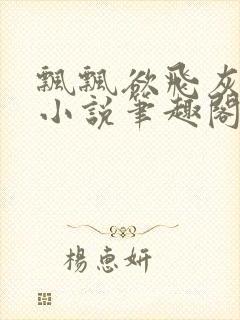 飄飄欲飛灰
小說筆趣閣
楊惠妍